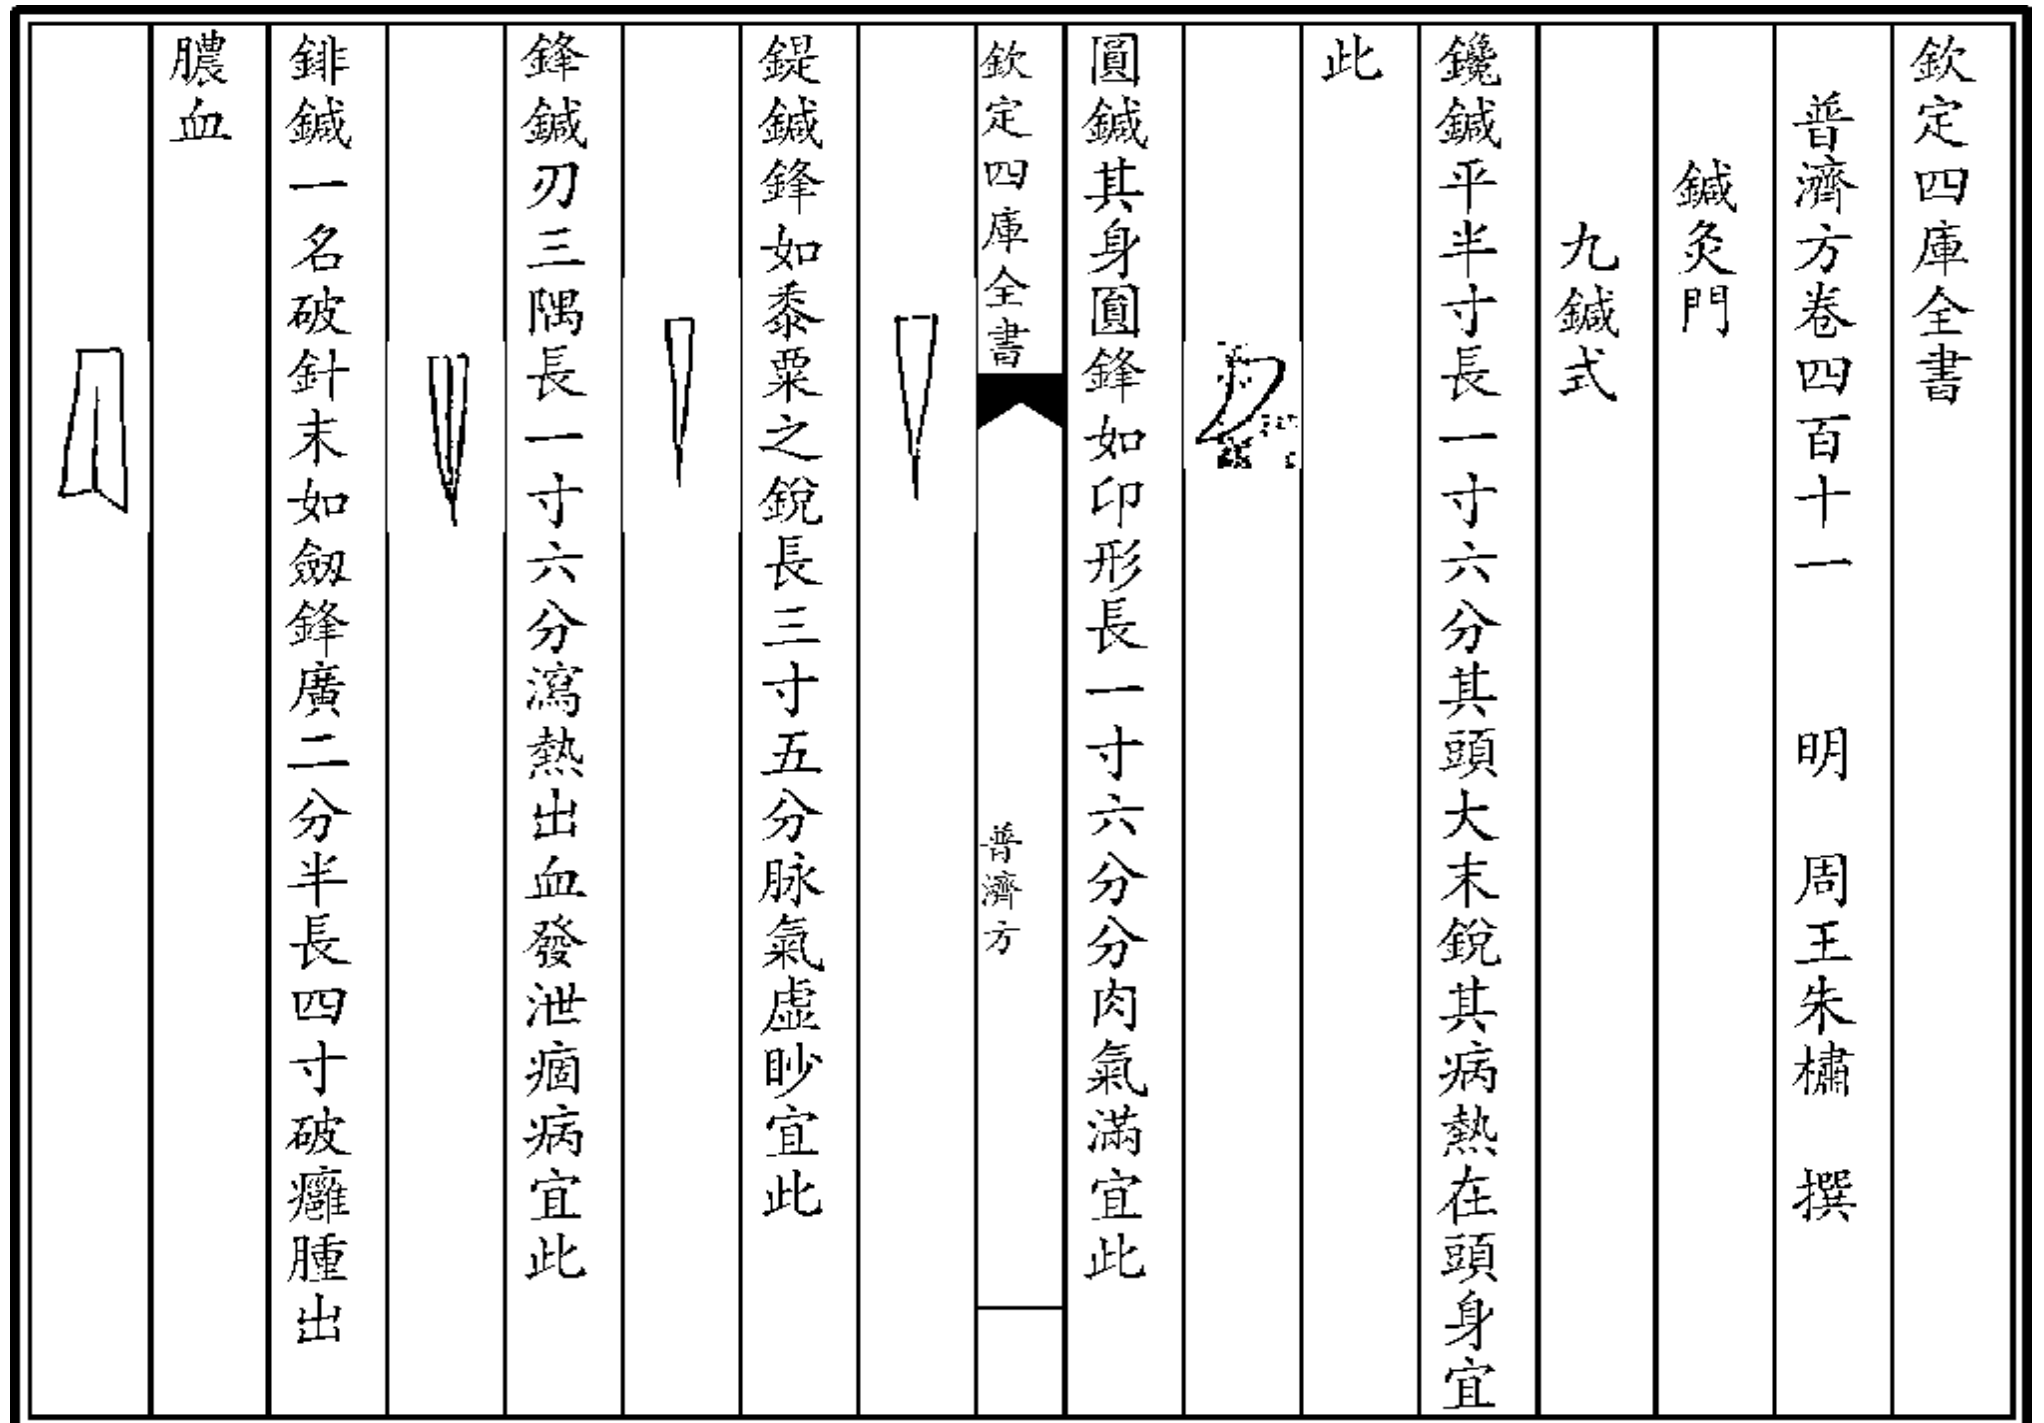 欽定四庫全書
普濟方卷四百十一　明　周王朱橚　撰
鍼灸門
九鍼式
鑱鍼平半寸長一寸六分其頭大末銳其病熱在頭身宜
此
圓鍼其身圓鋒如卬形長一寸六分分肉氣滿宜此
欽定四庫全書　普濟方
鍉鍼鋒如黍粟之銳長三寸五分脉氣虛眇宜此
鋒鍼刃三隅長一寸六分瀉熱出血發泄痼病宜此
鈹鍼一名破針末如劔鋒廣二分半長四寸破癰腫出
膿血